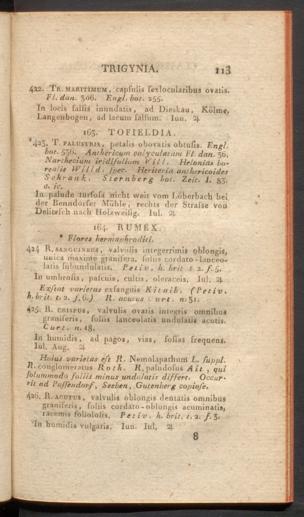 TRIGYNIA. 113
422. TR. MARITIMUM, capsulis sexlocularibus ovatis.
Fl. dan. 306. Engl. bot. 255.
In locis salsis inundatis, ad Dieskau, Kölme,
Langenbogen, ad lacum salsum. Iun. ♃
163. TOFIELDIA.
*423. T. PALUSTRIS, petalis obovatis obtusis. Engl.
bot. 536. Anthericum calyculatum Fl. dan. 36.
Narthecium iridifolium Vill. Helonias bo-
realis Willd. spec. Heriteria anthericoides
Schrank. Sternberg bot. Zeit. I. 83.
d. ic.
In palude turfosa nicht weit vom Löberbach bei
der Benndorfer Mühle, rechts der Strasse von
Delitzsch nach Holzweisig. Iul. ♃
164. RUMEX.
* Flores hermaphroditi.
424 R. SANGUINEUS, valvulis integerrimis oblongis,
unica maxime granifera, foliis cordato-lanceo-
latis subundulatis. Petiv. h. brit t. 2. f. 5.
In umbrosis, pascuis, cultis, oleraceis. Iul. ♃
Exsint varietas exsanguis Kitaib. (Petiv.
h. brit. t. 2. f. 6.) R. acutus Curt. n. 31.
425. R. CRISPUS, valvulis ovatis integris omnibus
graniferis, foliis lanceolatis undulatis acutis.
Curt. n. 18.
In humidis, ad pagos, vias, fossas frequens.
Iul. Aug. ♃
Huius varietas est R. Nemolapathum L. suppl.
R. conglomeratus Roth. R. paludosus Ait, qui
solummodo foliis minus undulatis differt. Occur-
rit ad Passendorf, Seeben, Gutenberg copiose.
426. R. ACUTUS, valvulis oblongis dentatis omnibus
graniferis, foliis cordato-oblongis acuminatis,
racemis foliolosis. Petiv. h. brit. t. 2. f. 3.
In humidis vulgaris. Iun. Iul. ♃
8